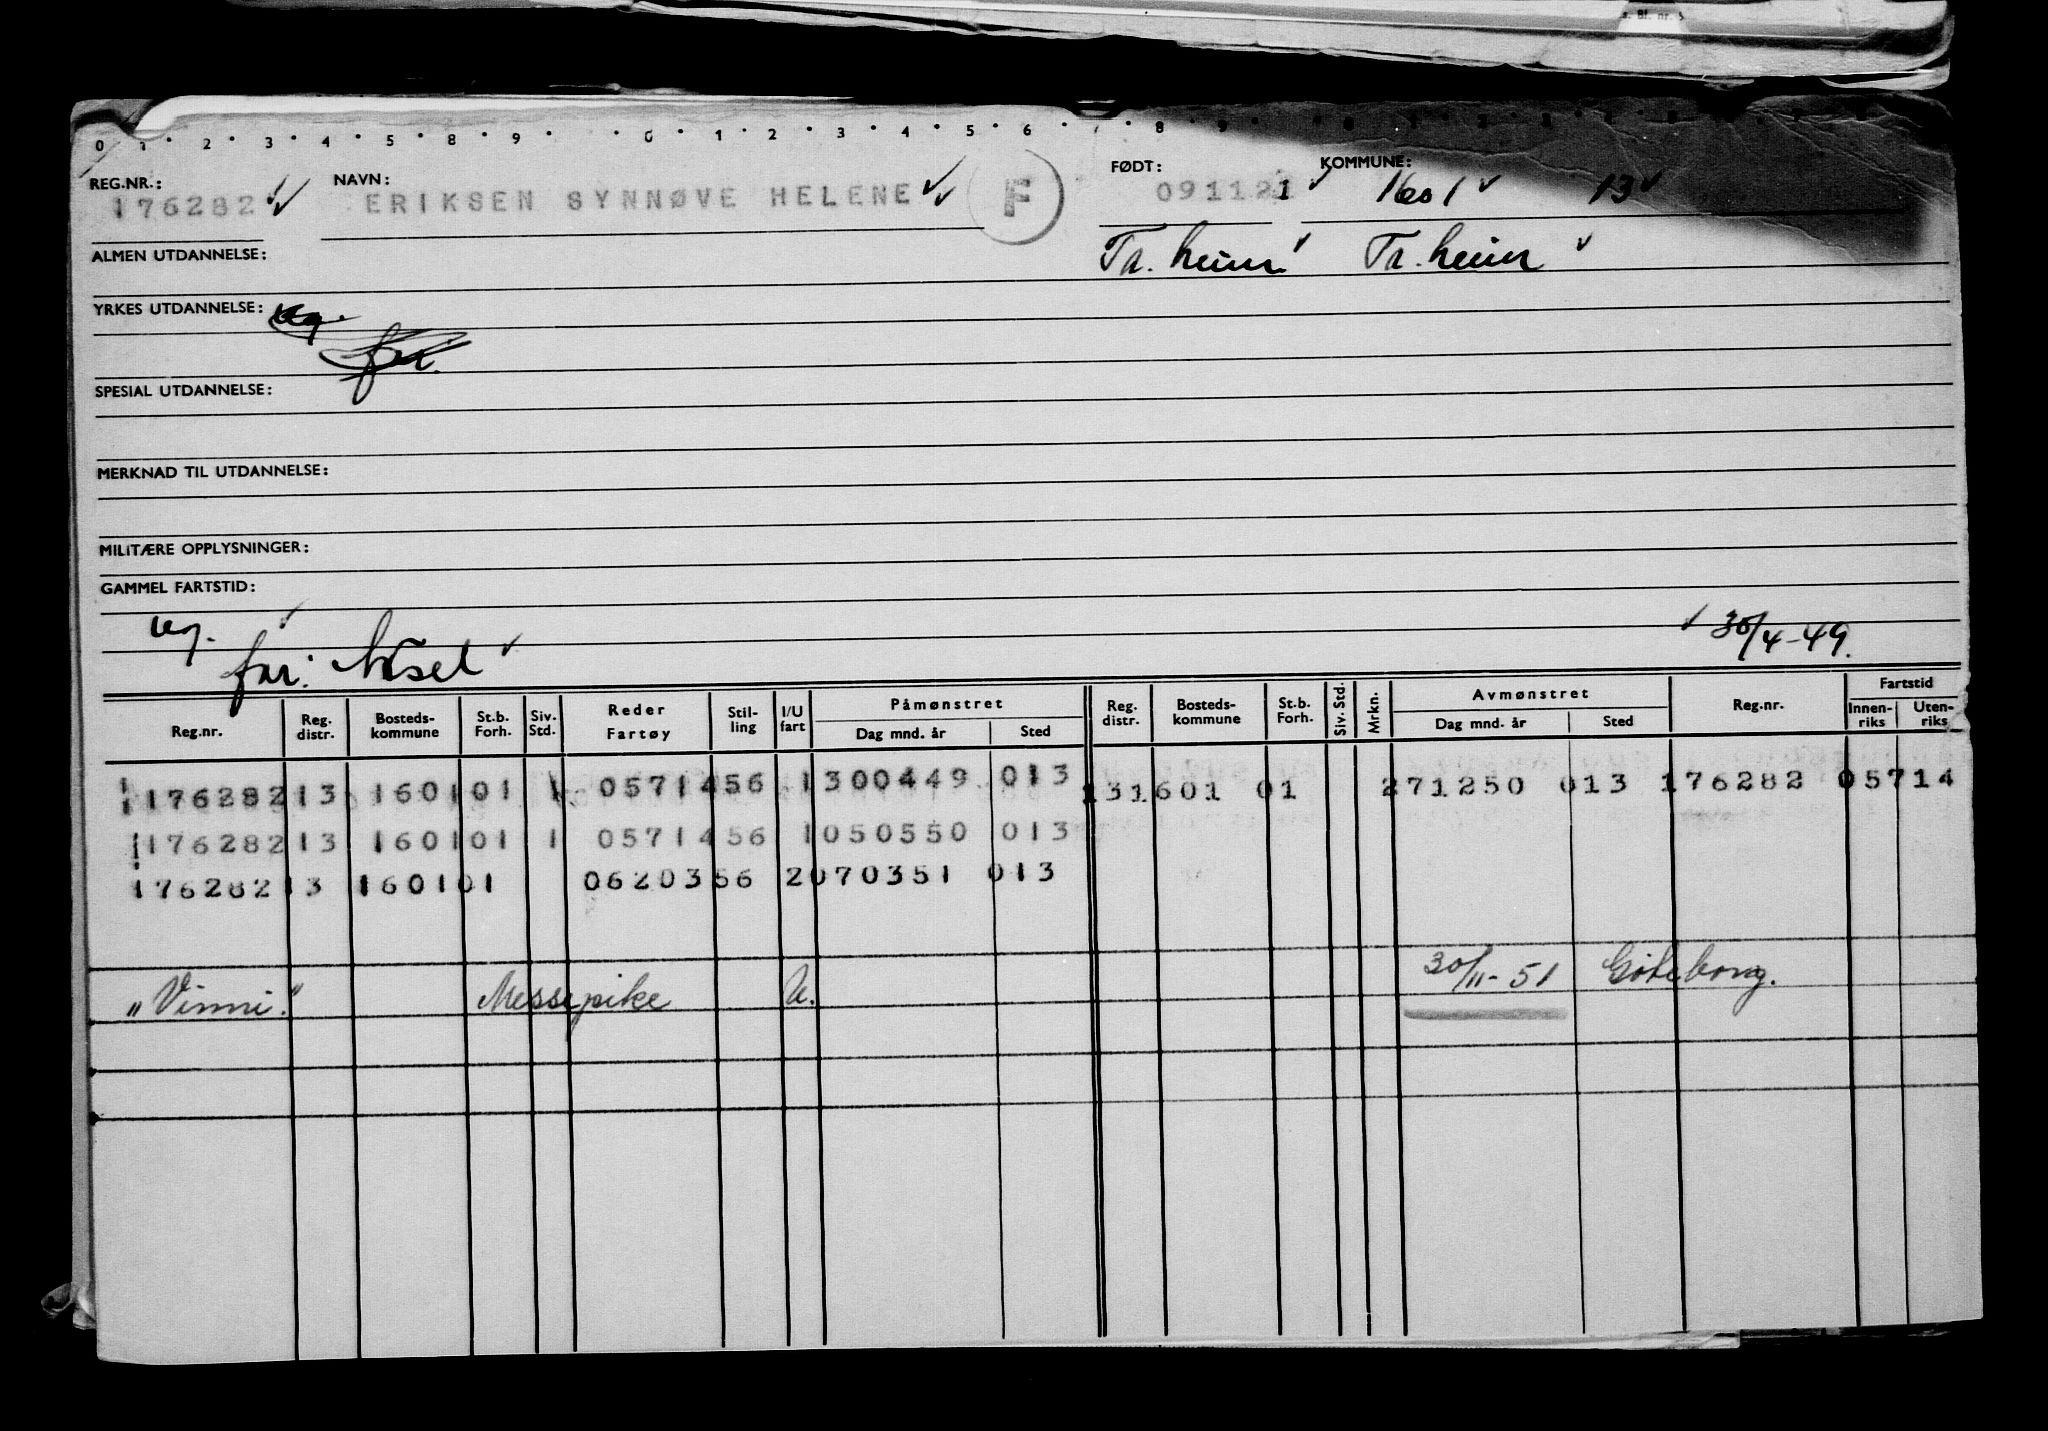 s. Bl. nr. 5
0 1 2 3 4 5 8 9 0 1 2 3 4 5 6 8 9
REG.NR.: NAVN: FØDT: KOMMUNE:
176282 ERIKSEN SYNNØVE HELENE F 091121 1601 13
Tr. heim Tr. heim
ALMEN UTDANNELSE:
YRKES UTDANNELSE: ug.
far.
SPESIAL UTDANNELSE:
MERKNAD TIL UTDANNELSE:
MILITÆRE OPPLYSNINGER:
GAMMEL FARTSTID:
ug. 30/4-49.
far:
Reg.nr. Reg. distr. Bosteds-kommune St.b. Forh. Siv. Std. Reder Fartøy Stil-ling I/U fart Påmønstret Dag mnd. år Sted Reg. distr. Bosteds-kommune St.b. Forh. Siv. Std. Mrkn. Avmønstret Dag mnd. år Sted Reg.nr. Fartstid Innen-riks Uten-riks
176282 13 1601 01 1 05714 56 1 300449 013 13 1601 01 271250 013 176282 05714
176282 13 1601 01 1 05714 56 1 050550 013
176282 13 1601 01 06203 56 2 070351 013
"Vinni." Messepike U. 30/11-51 Göteborg.